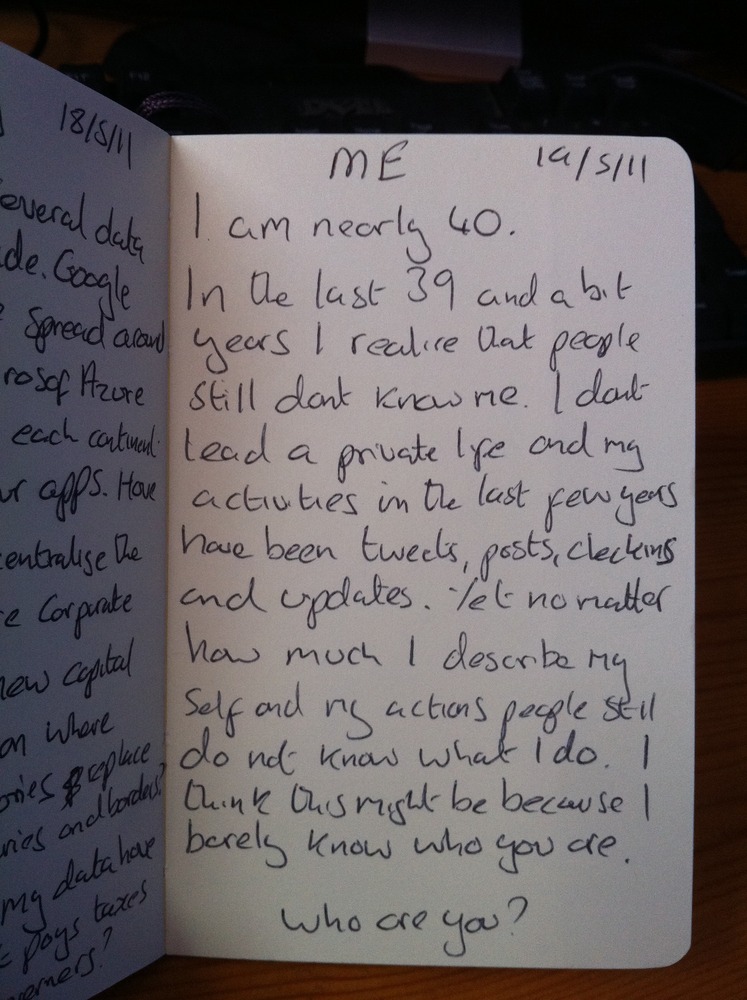 18/5/11
everal data
de. Google
? Spread around
rosof Azure
each continent.
ur apps. Have
centralise the
e Corporate
new capital
on where
ories replace
ries and borders?
my data have
pays taxes
verners?
ME 19/5/11
I am nearly 40.
In the last 39 and a bit
years I realise that people
still dont know me. I dont
lead a private life and my
activities in the last few years
have been tweets, posts, checkins
and updates. Yet no matter
how much I describe my
self and my actions people still
do not know what I do. I
think this might be because I
barely know who you are.
Who are you?
DELL